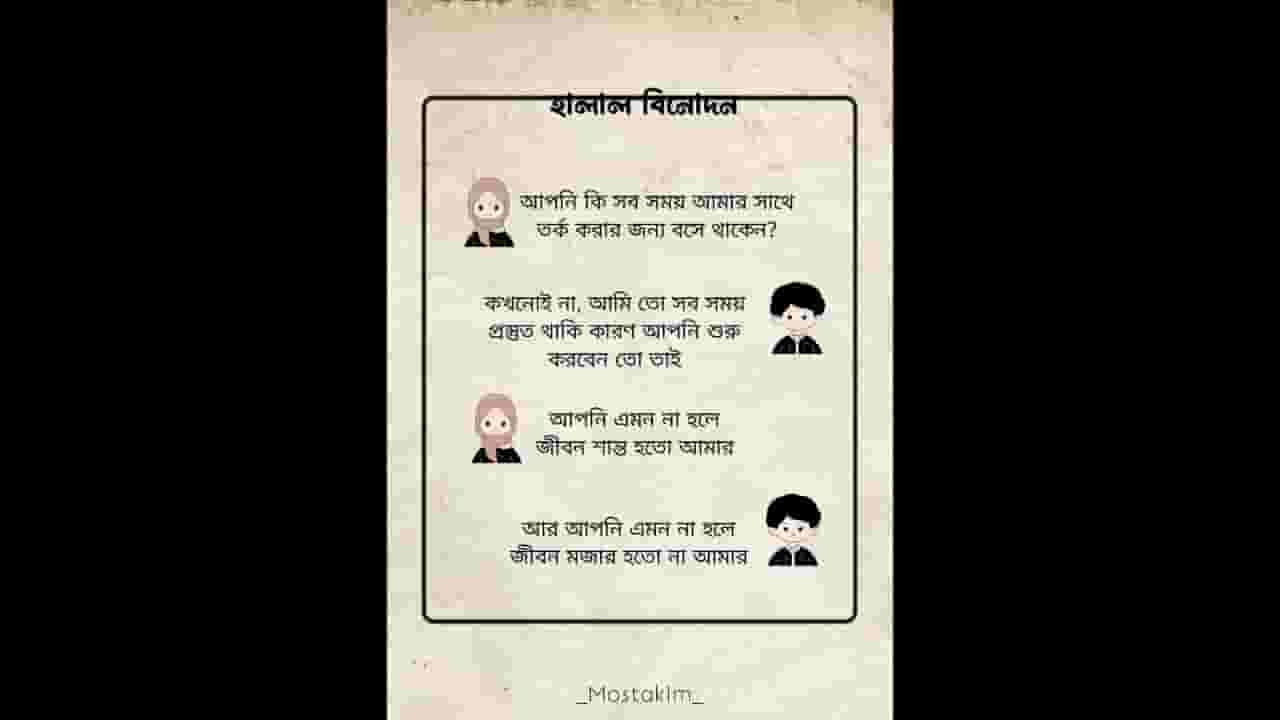 হালাল বিনোদন
আপনি কি সব সময় আমার সাথে
তর্ক করার জন্য বসে থাকেন?
কখনোই না, আমি তো সব সময়
প্রস্তুত থাকি কারণ আপনি শুরু
করবেন তো তাই
আপনি এমন না হলে
জীবন শান্ত হতো আমার
আর আপনি এমন না হলে
জীবন মজার হতো না আমার
_Mostakim_